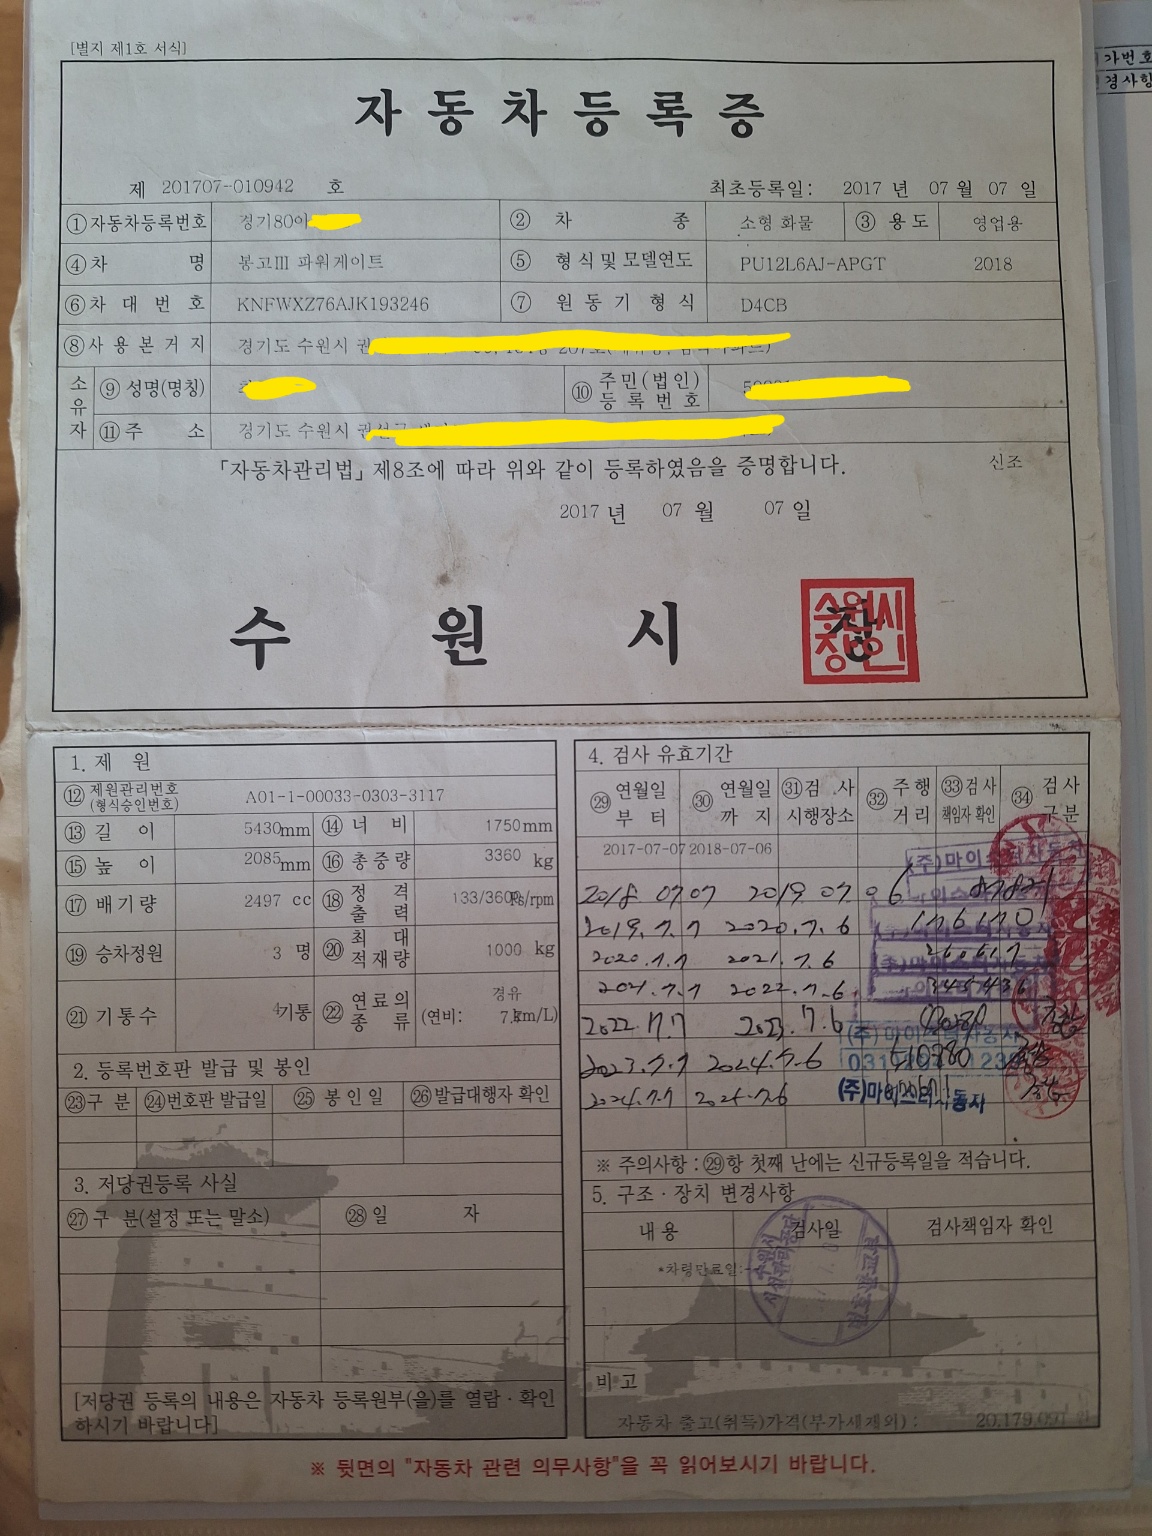 [별지 제1호 서식]
자동차등록증
제 201707-010942 호
최초등록일: 2017 년 07 월 07 일
①자동차등록번호 경기80아 ② 차 종 소형 화물 ③ 용도 영업용
④차 명 봉고Ⅲ 파워게이트 ⑤ 형식 및 모델연도 PU12L6AJ-APGT 2018
⑥차대번호 KNFWXZ76AJK193246 ⑦ 원동기형식 D4CB
⑧사용본거지 경기도 수원시 권
소유자 ⑨성명(명칭) ⑩ 주민(법인)등록번호
⑪주 소 경기도 수원시 권선구
「자동차관리법」 제8조에 따라 위와 같이 등록하였음을 증명합니다. 신조
2017 년 07 월 07 일
수 원 시 장
수원시장인
1. 제 원
⑫ 제원관리번호 (형식승인번호) A01-1-00033-0303-3117
⑬길 이 5430mm ⑭너 비 1750mm
⑮높 이 2085mm ⑯총중량 3360 kg
⑰배기량 2497 cc ⑱정격출력 133/3600Ps/rpm
⑲승차정원 3 명 ⑳최대적재량 1000 kg
㉑기통수 4기통 ㉒연료의종류 경유 (연비: km/L)
2. 등록번호판 발급 및 봉인
㉓구 분 ㉔번호판 발급일 ㉕봉인일 ㉖발급대행자 확인
3. 저당권등록 사실
㉗구 분(설정 또는 말소) ㉘일 자
[저당권 등록의 내용은 자동차 등록원부(을)를 열람·확인
하시기 바랍니다]
4. 검사 유효기간
㉙연월일부터 ㉚연월일까지 ㉛검사시행장소 ㉜주행거리 ㉝검사책임자 확인 ㉞검사구분
2017-07-07 2018-07-06
2018 07 07 2019. 07. 06
2019. 7. 7 2020. 7. 6 176170
2020. 7. 7 2021. 7. 6
2021. 7. 7 2022. 7. 6 345436
2022. 7. 7 2023. 7. 6
2023. 7. 7 2024. 7. 6
2024. 7. 7
(주)마이스터자동차
※ 주의사항 : ㉙항 첫째 난에는 신규등록일을 적습니다.
5. 구조·장치 변경사항
내용 검사일 검사책임자 확인
*차령만료일:
비고
자동차 출고(취득)가격(부가세제외) : 20,179,091
※ 뒷면의 "자동차 관련 의무사항"을 꼭 읽어보시기 바랍니다.